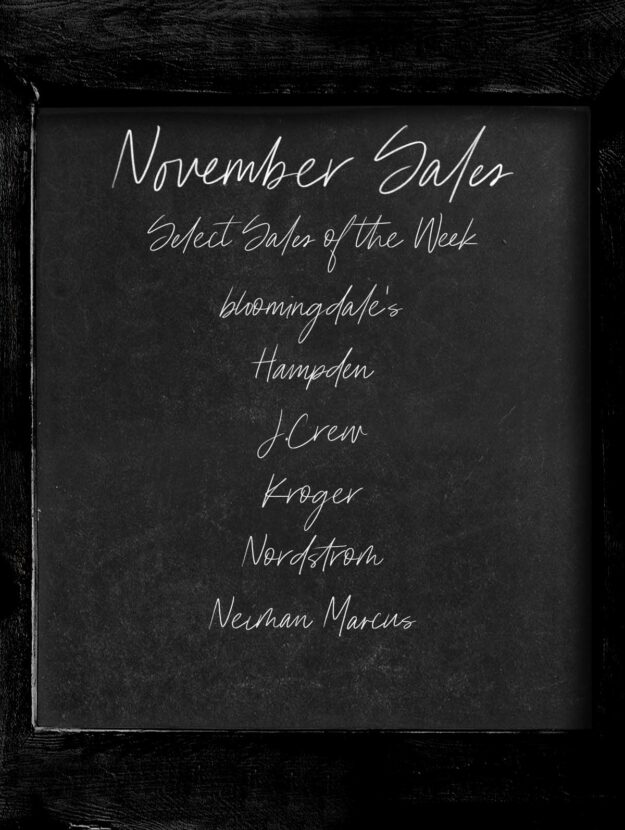 November Sales
Select Sales of the Week
bloomingdale's
Hampden
J.Crew
Kroger
Nordstrom
Neiman Marcus